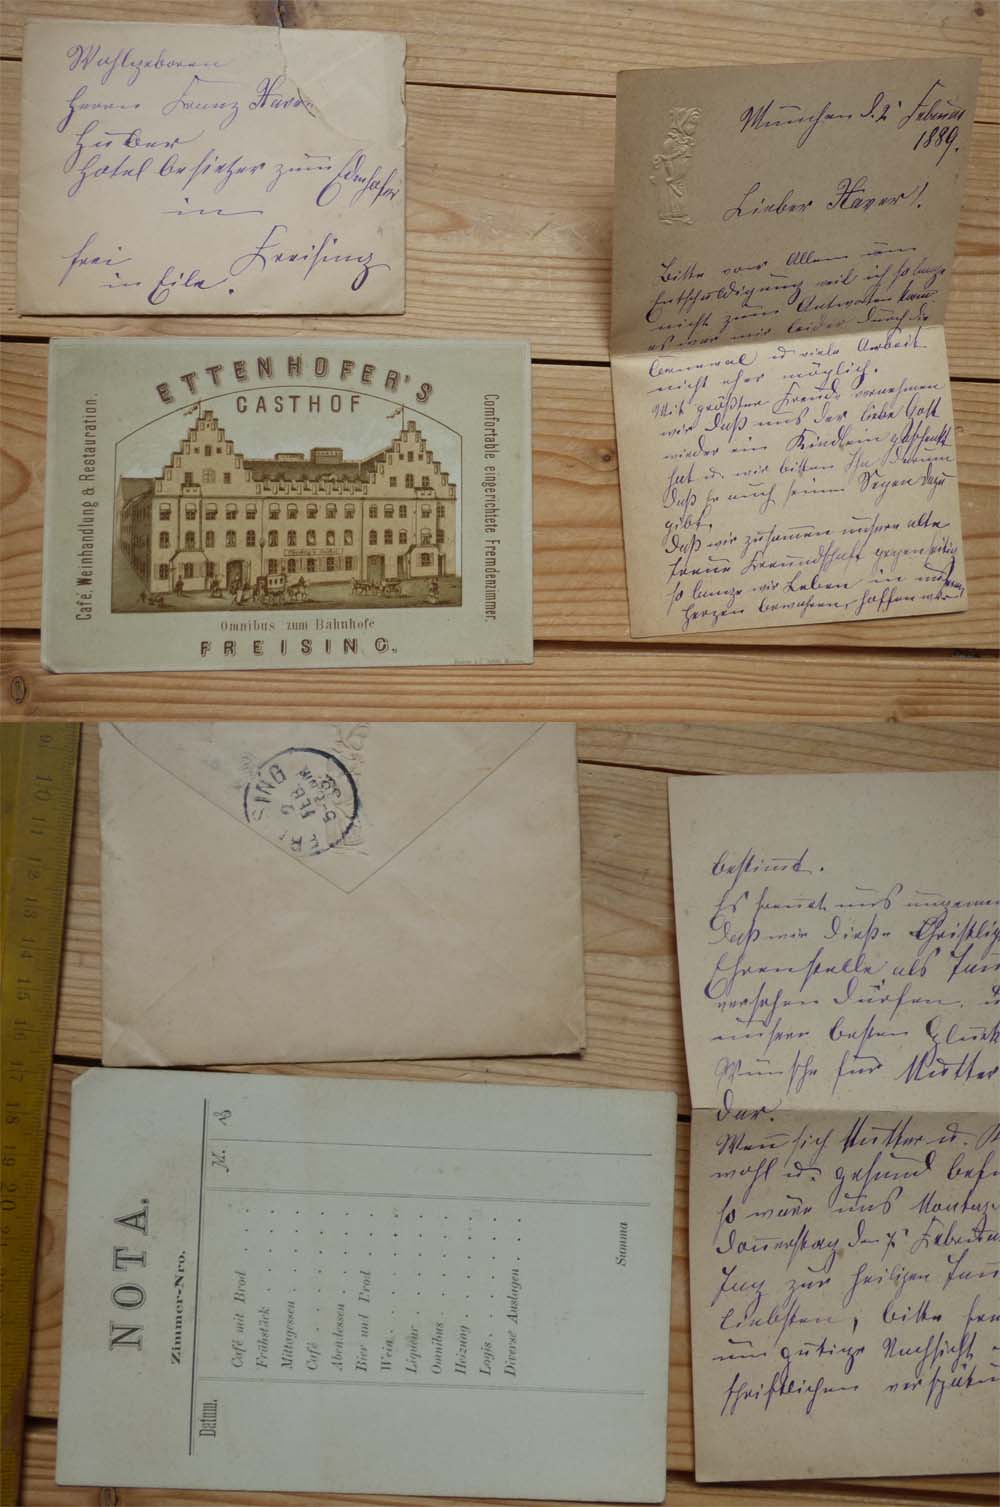 Wohlgeboren
Herrn Franz Xaver
Huber
Hotelbesitzer zum Ettenhofer
in
frei Freising
in Eile.
München d. 2' Februar
1889.
Lieber Xaver!
Bitte vor Allem um
Entschuldigung weil ich so lange
nicht zum Antworten kam
es war mir leider durch die
u viele Arbeit
nicht eher möglich.
Mit größter Freude vernehmen
wir daß uns der liebe Gott
wieder ein Kindlein geschenkt
hat u. wir bitten Ihn darum
daß er auch seinen Segen dazu
gibt.
Daß wir zusammen unsere alte
treue Freundschaft gegenseitig
so lange wir Leben in unseren
Herzen bewahren, hoffen wir
ETTENHOFER'S
GASTHOF
Café, Weinhandlung & Restauration.
Comfortable eingerichtete Fremdenzimmer.
Omnibus zum Bahnhofe
FREISING.
FREISING
FEB
bestimmt.
Es freut uns ungemein
daß wir diese
Ehrenstelle als
versehen dürfen.
unsere besten Glück
Wünsche für Mutter
dar.
Wenn sich Mutter u.
wohl u. gesund
so wäre uns Montag
Donnerstag den 7' Februar
Tag zur heiligen
liebsten, bitte
um gütige Nachsicht
schriftlichen
NOTA.
Zimmer-Nro.
Datum.
M. ₰
Café mit Brod
Frühstück
Mittagessen
Café
Abendessen
Bier und Brod
Wein
Liqueur
Omnibus
Heizung
Logis
Diverse Auslagen
Summa
9 10 11 12 13 14 15 16 17 18 19 20